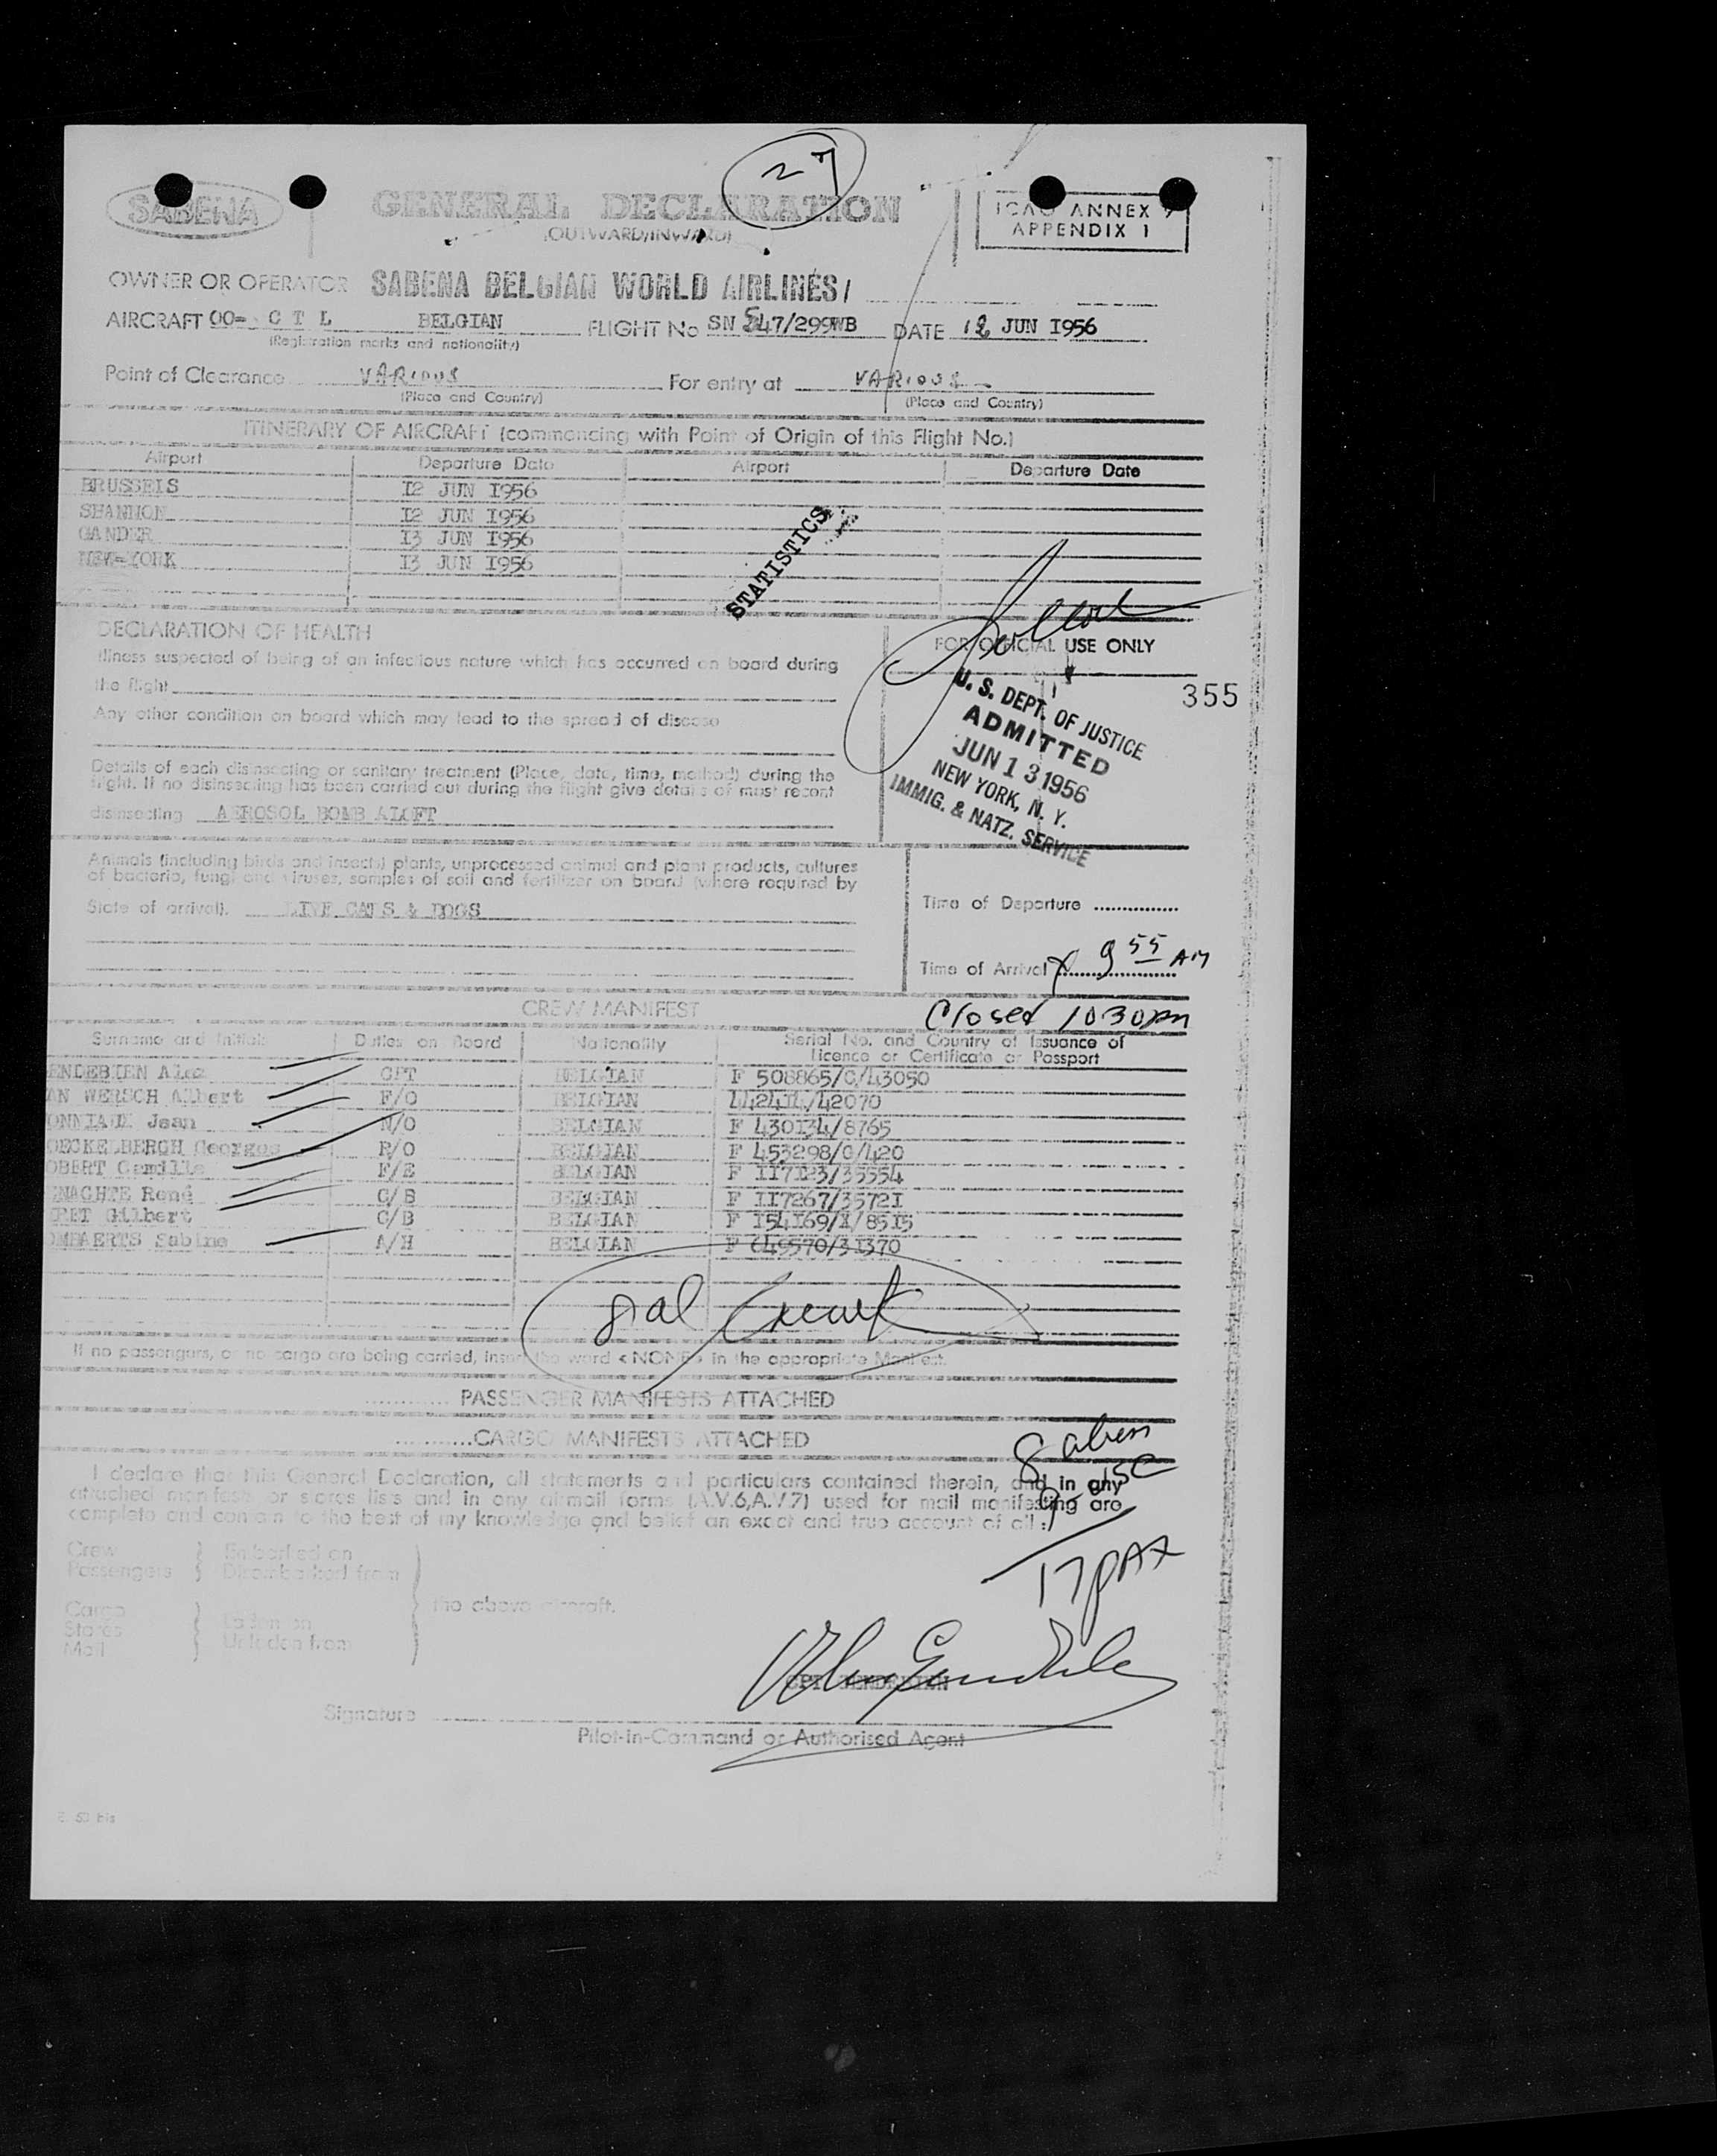 27
SABENA GENERAL DECLARATION ICAO ANNEX 9
(OUTWARD/INWARD) APPENDIX 1
OWNER OR OPERATOR SABENA BELGIAN WORLD AIRLINES/
AIRCRAFT OO- C T L BELGIAN FLIGHT No SN 547/299WB DATE 12 JUN 1956
(Registration marks and nationality)
Point of Clearance VARIOUS For entry at VARIOUS
(Place and Country) (Place and Country)
ITINERARY OF AIRCRAFT (commencing with Point of Origin of this Flight No.)
Airport Departure Date Airport Departure Date
BRUSSELS I2 JUN I956
SHANNON I2 JUN I956
GANDER I3 JUN I956
NEW-YORK I3 JUN I956
STATISTICS
DECLARATION OF HEALTH FOR OFFICIAL USE ONLY
Illness suspected of being of an infectious nature which has occurred on board during
the flight
355
Any other condition on board which may lead to the spread of disease
U. S. DEPT. OF JUSTICE
ADMITTED
JUN 13 1956
NEW YORK, N. Y.
IMMIG. & NATZ. SERVICE
Details of each disinsecting or sanitary treatment (Place, date, time, method) during the
flight. If no disinsecting has been carried out during the flight give details of most recent
disinsecting AEROSOL BOMB ALOFT
Animals (including birds and insects) plants, unprocessed animal and plant products, cultures
of bacteria, fungi and viruses, samples of soil and fertilizer on board (where required by
State of arrival). LIVE CATS & DOGS
Time of Departure
Time of Arrival 9 55 AM
CREW MANIFEST Closed 1030 AM
Surname and Initials Duties on Board Nationality Serial No. and Country of Issuance of
Licence or Certificate or Passport
ENDEBIEN Alex CPT BELGIAN F 508865/C/43050
AN WERSCH Albert F/O BELGIAN 442414/42070
ONNIAUX Jean N/O BELGIAN F 430134/8765
OECKELBERGH Georges R/O BELGIAN F 453298/C/420
OBERT Camille F/E BELGIAN F II7I23/35554
ENACHTE René C/B BELGIAN F II7267/3572I
PET Gilbert C/B BELGIAN F I54I69/X/85I5
OMBAERTS Sabine A/H BELGIAN F 649570/3I370
If no passengers, or no cargo are being carried, insert the word «NONE» in the appropriate Manifest.
PASSENGER MANIFESTS ATTACHED
CARGO MANIFESTS ATTACHED
8 alien
9 USC
17 PAX
I declare that this General Declaration, all statements and particulars contained therein, and in any
attached manifest or stores lists and in any airmail forms (A.V.6,A.V.7) used for mail manifesting are
complete and contain to the best of my knowledge and belief an exact and true account of all:
Crew Embarked on
Passengers Disembarked from
the above aircraft.
Cargo
Stores Laden on
Mail Unladen from
Signature
Pilot-in-Command or Authorised Agent
53 bis